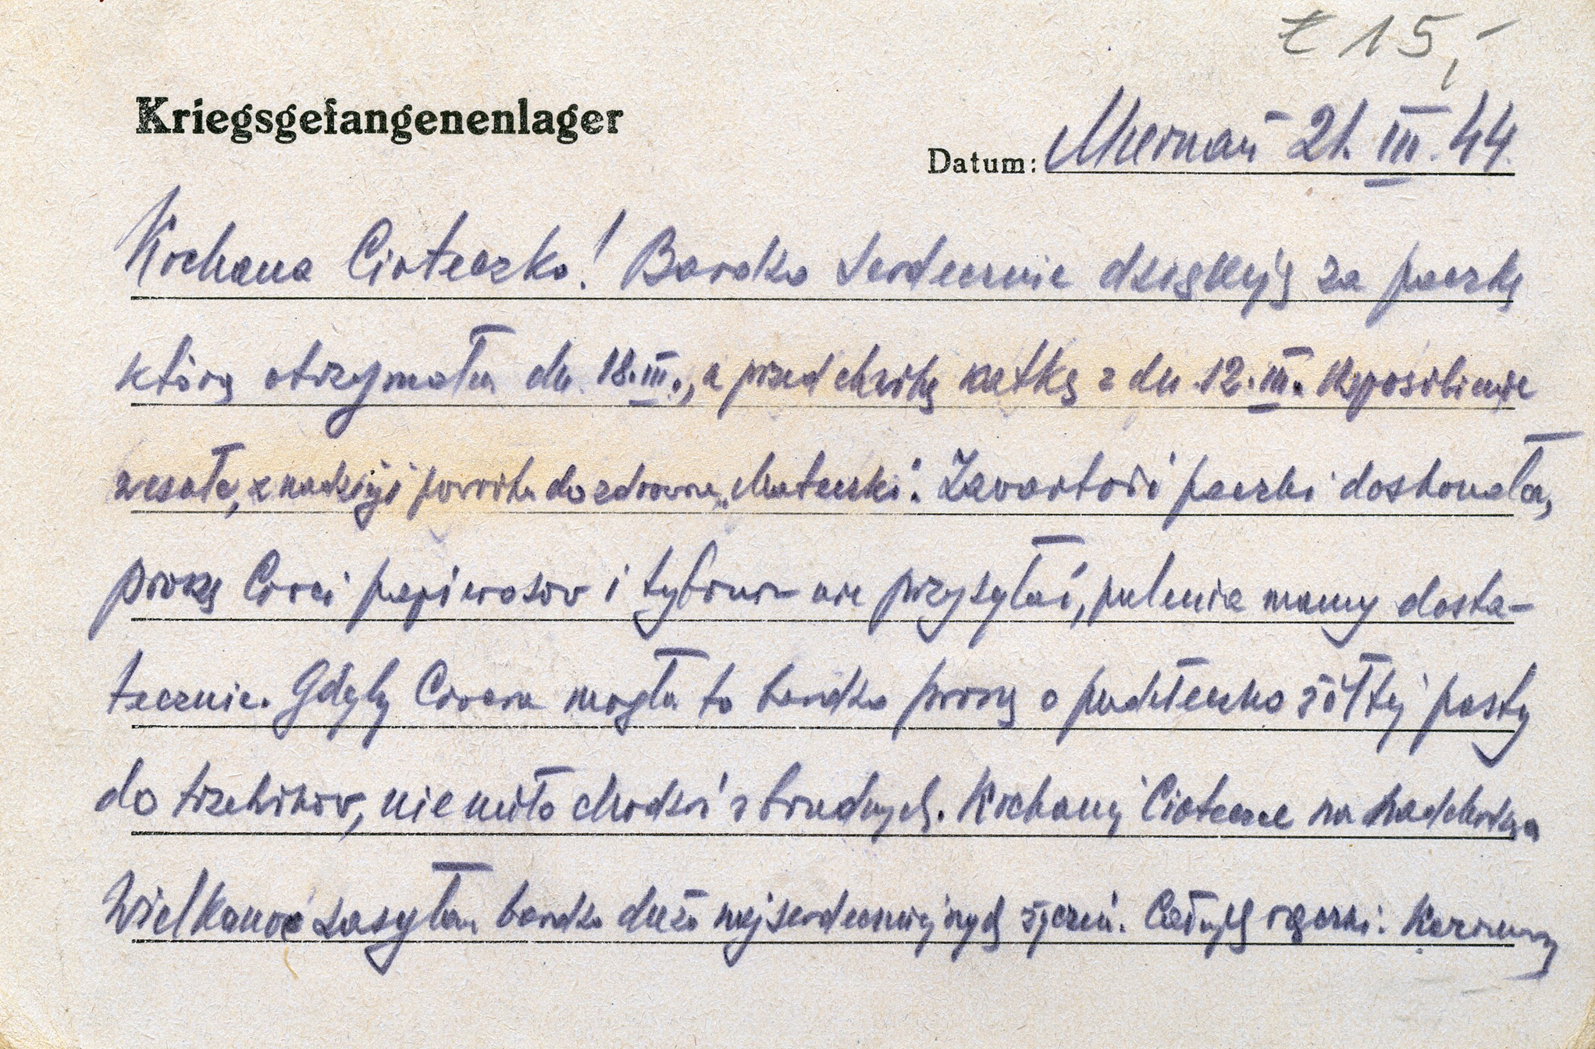 ł 15,-
Kriegsgefangenenlager
Datum: Murnau 21. III. 44.
Kochana Cioteczko! Bardzo serdecznie dziękuję za paczkę
którą otrzymałem dn. 18.III., a przed chwilą kartkę z dn. 12.III. Usposobienie
wesołe, z nadzieji powrotu do zdrowia „Mateczki". Zawartość paczki doskonała,
proszę Cioci papierosów i tytoniu nie przysyłać, palenia mamy dosta-
tecznie. Gdyby Ciocia mogła to bardzo proszę o pudełeczko żółtej pasty
do trzewików, nie miło chodzić w brudnych. Kochanej Cioteczce na nadchodzącą
Wielkanoc zasyłam bardzo dużo najserdeczniejszych życzeń. Całuję rączki. Kazimierz